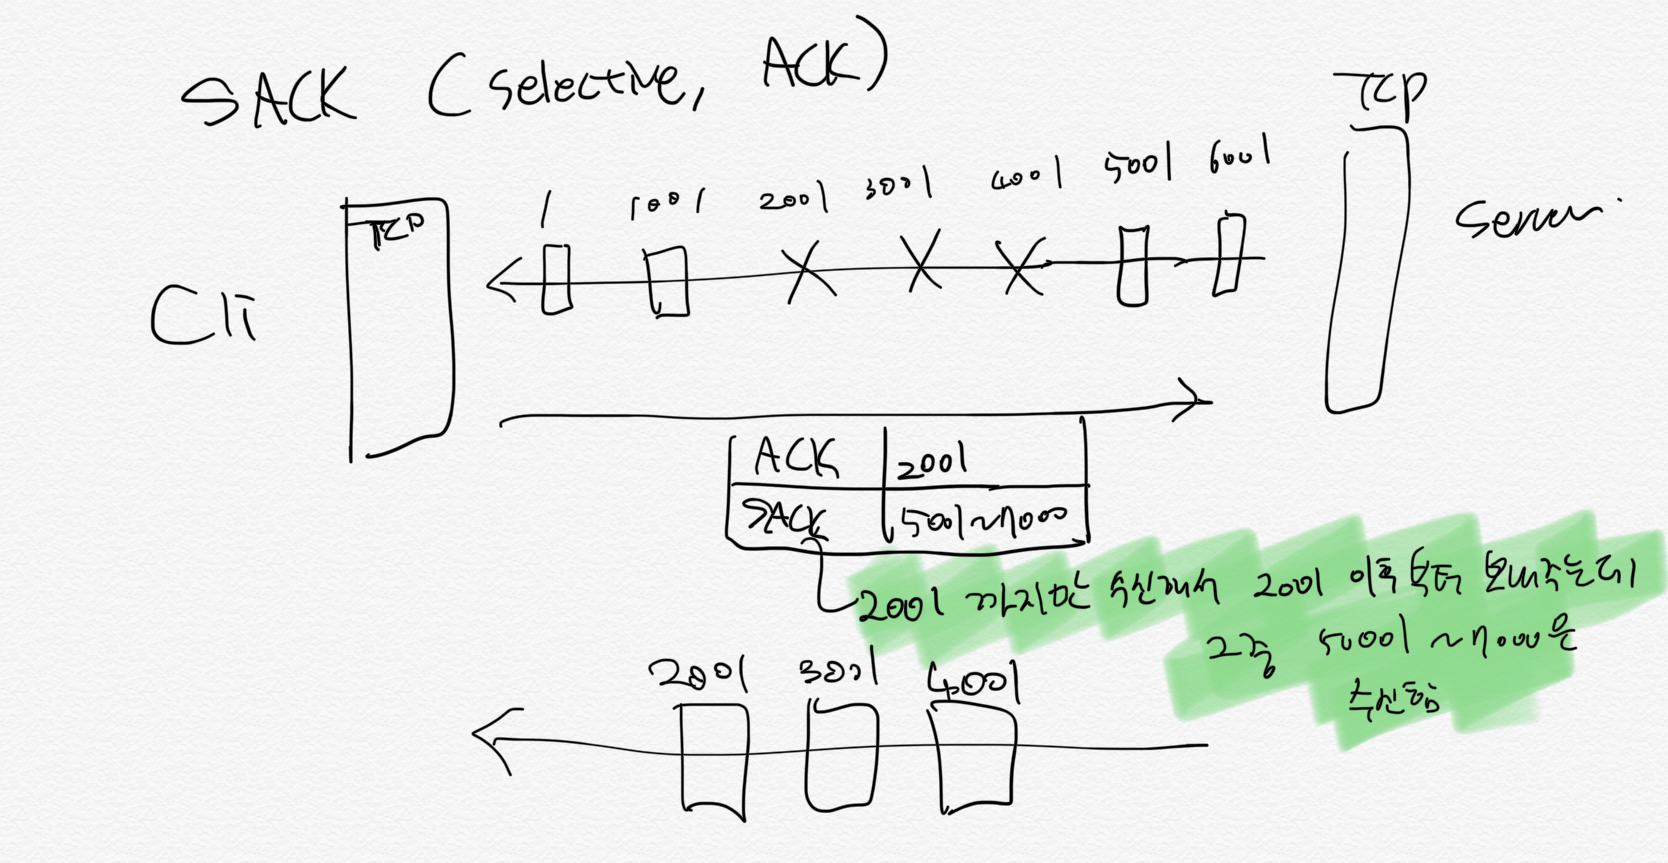 SACK (selective, ACK)
TCP
1 1001 2001 3001 4001 5001 6001
TCP
Server
Cli
ACK 2001
SACK 5001~7000
2001 까지만 수신해서 2001 이후 부터 보내주는데
그중 5001 ~7000은
수신함
2001 3001 4001